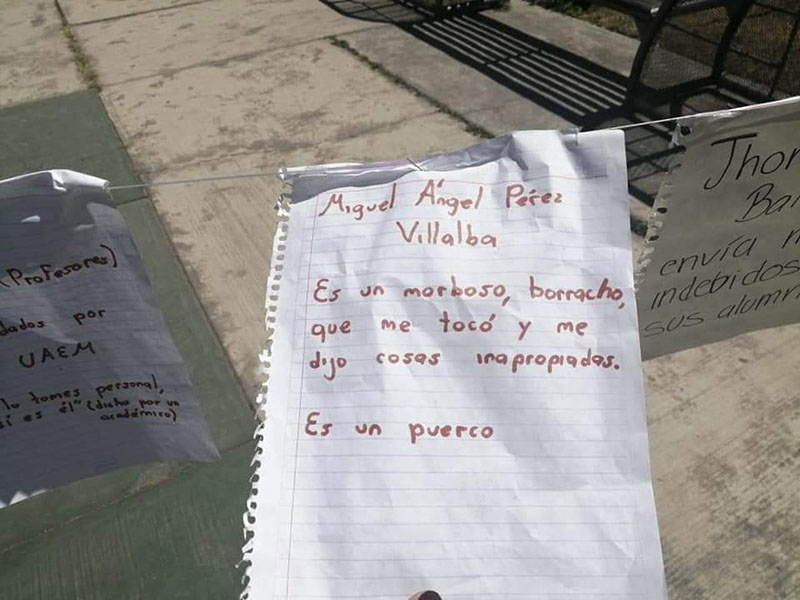 (Profesores)
dados por
UAEM
lo tomes personal,
así es él" (dicho por un
académico)
Miguel Ángel Pérez
Villalba
Es un morboso, borracho,
que me tocó y me
dijo cosas inapropiadas.
Es un puerco
Jhon
envía
indebidos
sus